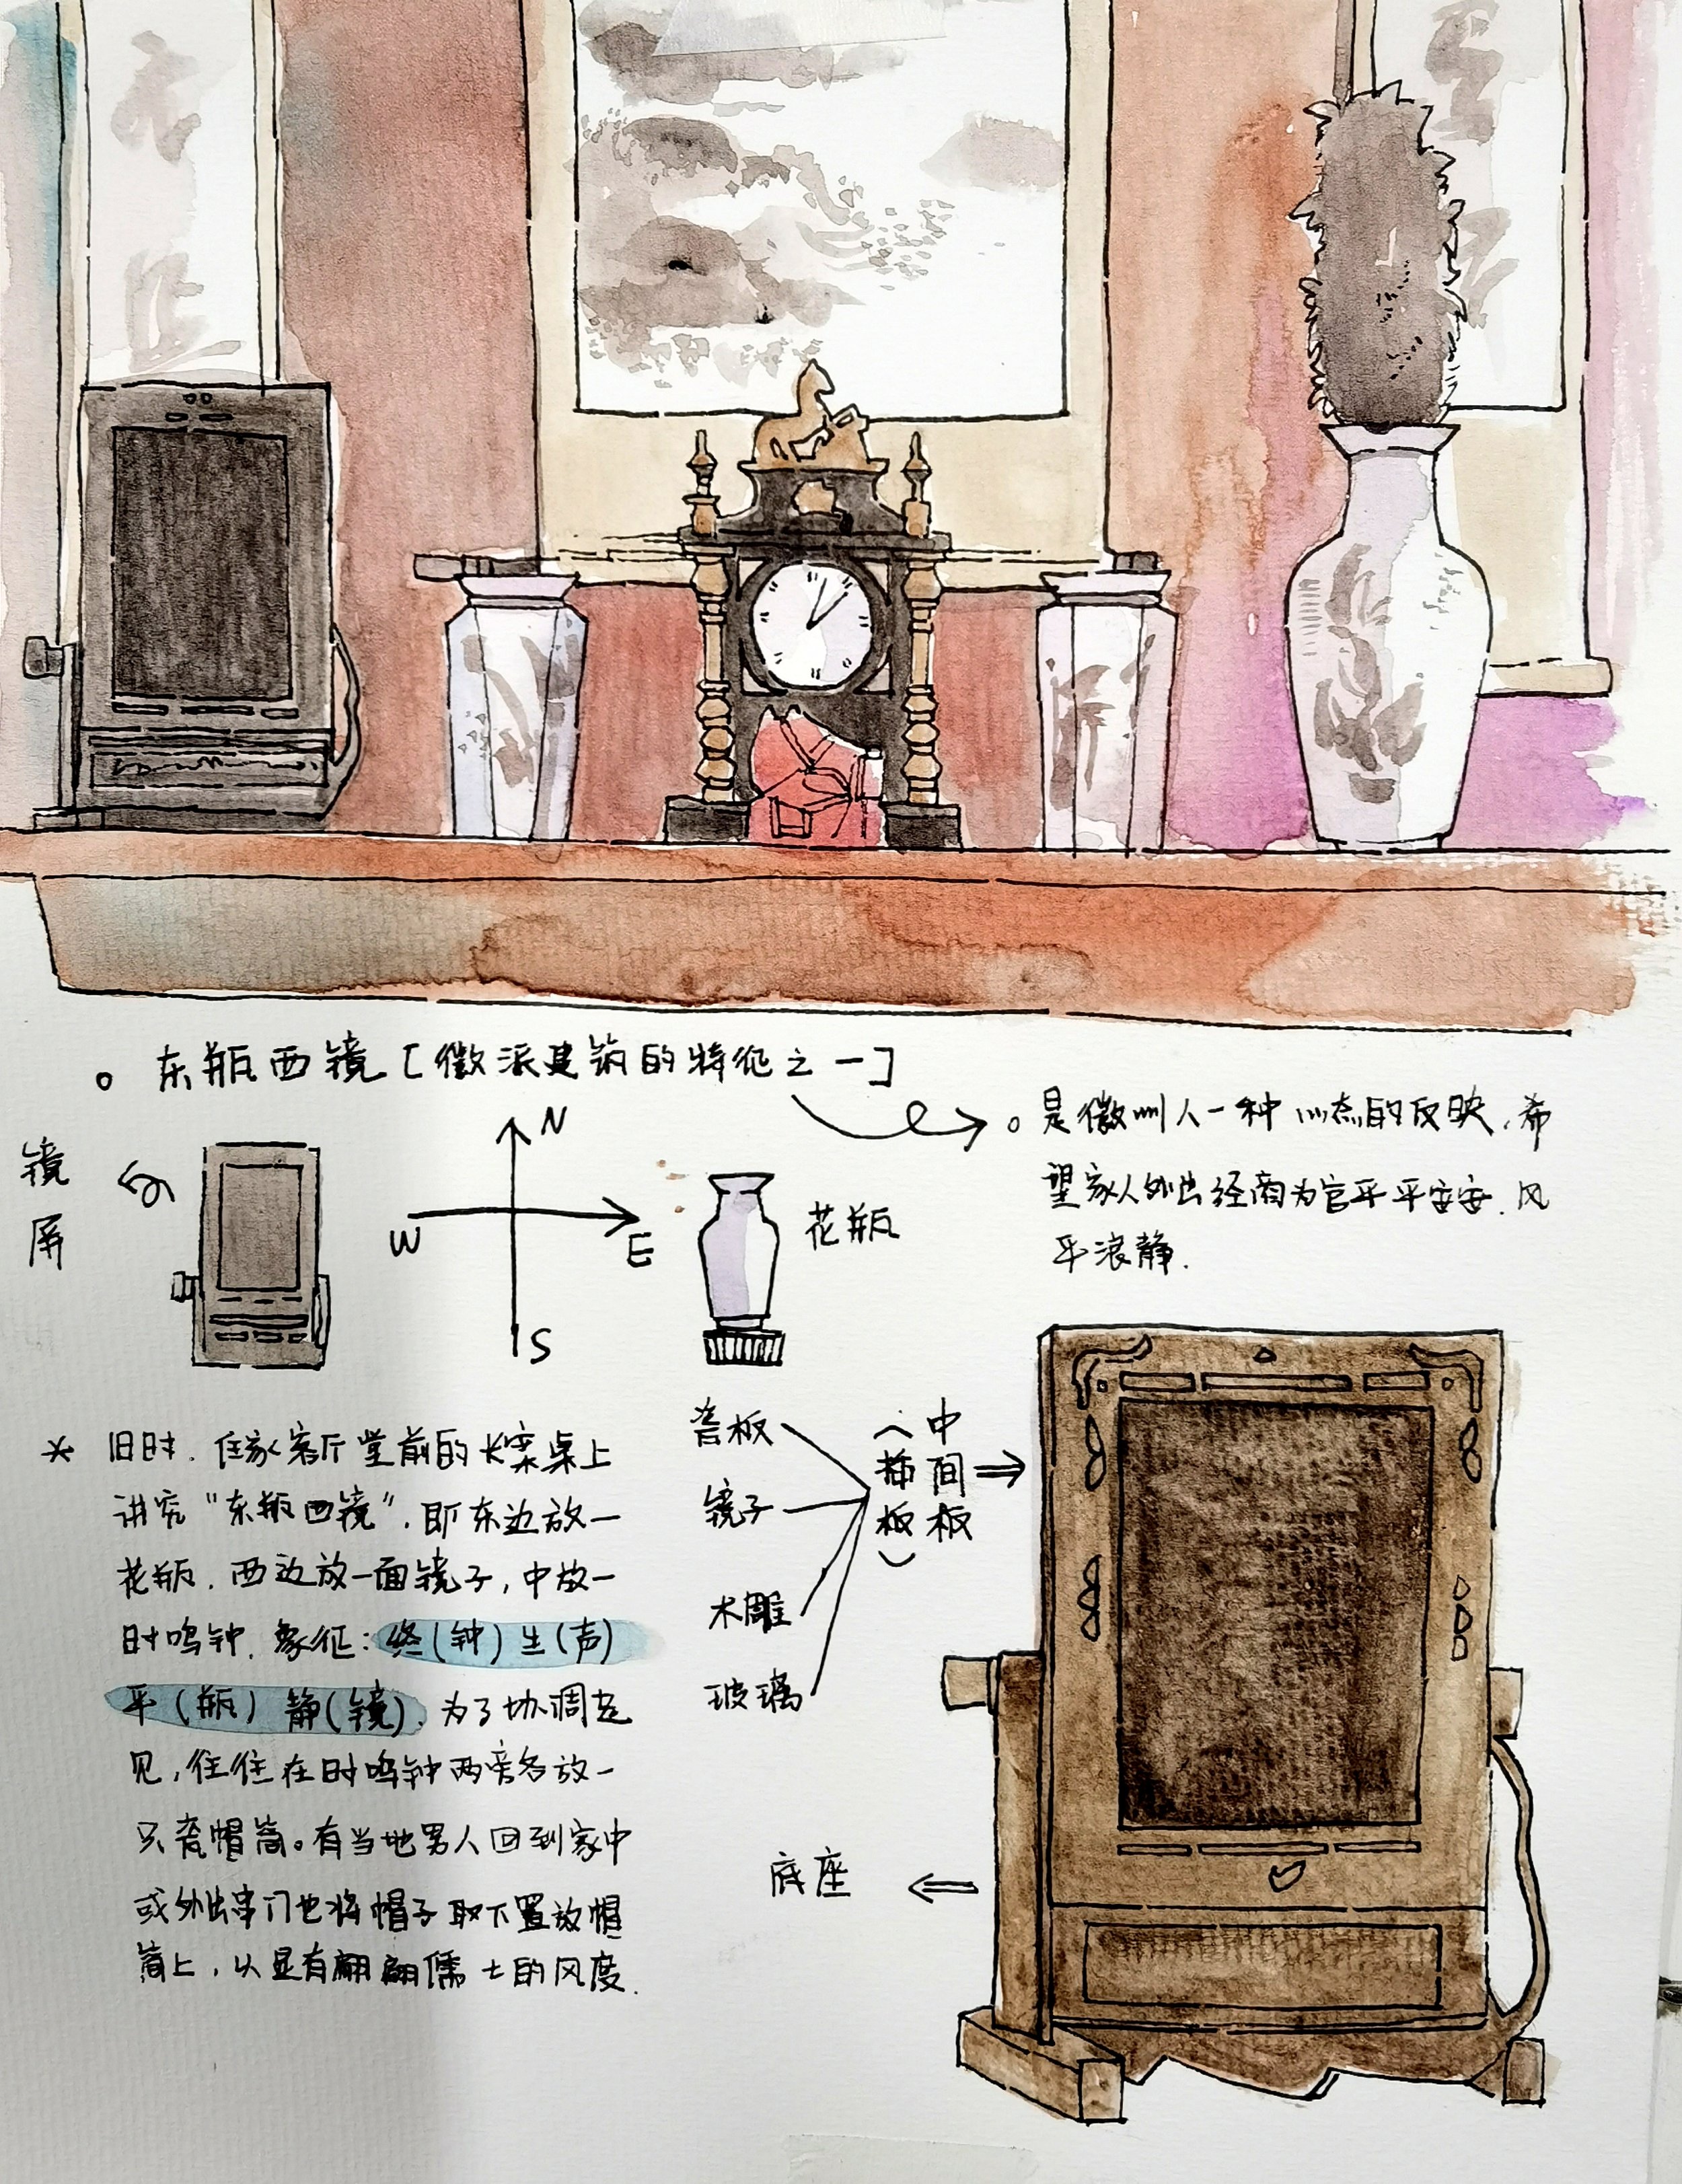 东瓶西镜[徽派建筑的特征之一]
是徽州人一种心态的反映,希
望家人外出经商为官平平安安.风
平浪静.
镜屏
N
W
E
S
花瓶
* 旧时.住家客厅堂前的长案桌上
讲究“东瓶西镜”.即东边放一
花瓶.西边放一面镜子,中放一
时鸣钟.象征:终(钟)生(声)
平(瓶)静(镜).为了协调起
见,往往在时鸣钟两旁各放一
只瓷帽筒。有当地男人回到家中
或外出串门也将帽子取下置放帽
筒上,以显有翩翩儒士的风度.
瓷板
镜子
木雕
玻璃
中间板
(插板)
底座